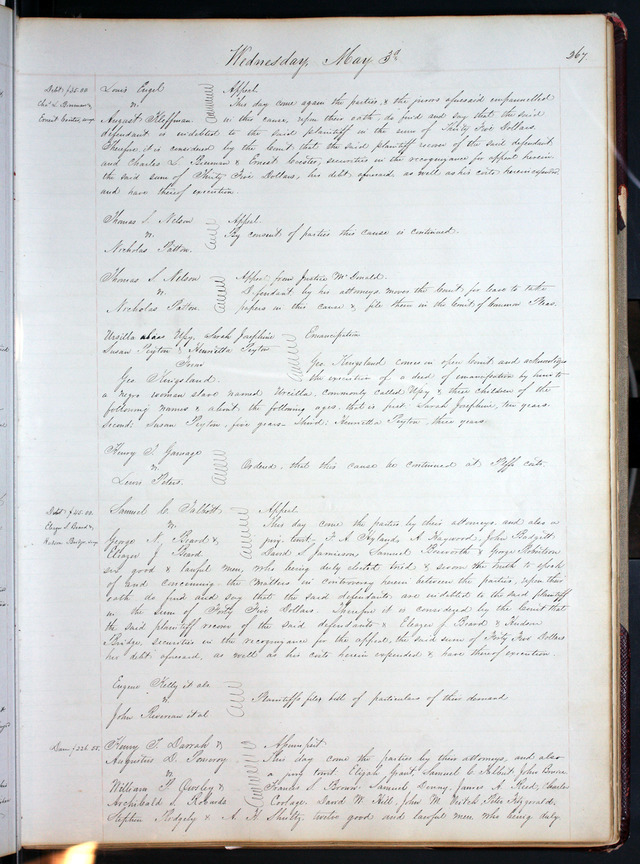 Wednesday, May 3d
267
Debt $35.00
Louis Engel
vs
August Kloffman
Appeal
This day come again the parties, & the jurors aforesaid empannelled
in this cause, upon their oath do find and say that the said
defendant is indebted to the said plaintiff in the sum of Thirty Five Dollars.
Therefore it is considered by the Court that the said plaintiff recover of the said defendant
and Charles L. & Ernest securities in the recognizance for appeal herein
the said sum of Thirty Five Dollars, his debt aforesaid, as well as his costs herein expended
and have thereof execution.
Thomas S. Nelson
vs
Nicholas Patton
Appeal
By consent of parties this cause is continued.
Thomas S. Nelson
vs
Nicholas Patton
Appeal from Justice McDonald
Defendant by his attorneys moves the Court for leave to take
papers in this cause & file them in the Court of Common Pleas.
Ursilla alias Upsy, Sarah Josephine
Susan Peyton & Henrietta Peyton
From
Geo. Kingsland
Emancipation
Geo. Kingsland comes in open Court and acknowledges
the execution of a deed of emancipation by him to
a negro woman slave named Urcilla, commonly called Upsy & three children of the
following names & about the following ages, that is first. Sarah Josephine, ten years.
Second: Susan Peyton, five years. Third: Henrietta Peyton, three years.
Henry T.
vs
Lewis Peters
Ordered, that this cause be continued at Plffs costs.
Debt $45.00
Samuel C. Talbott
vs
George N. Beard &
Eleazer J. Beard
Appeal
This day come the parties by their attorneys and also a
jury, to wit, F. A. A. Haywood, John
David S. Jamison, Samuel & George Robertson
six good & lawful men, who being duly elected tried & sworn the truth to speak
of and concerning the matters in controversy herein between the parties, upon their
oath do find and say that the said defendants are indebted to the said plaintiff
in the sum of Forty Five Dollars. Therefore it is considered by the Court that
the said plaintiff recover of the said defendants & Eleazer J. Beard & Hudson
Bridge, securities in the recognizance for the appeal, the said sum of Forty Five Dollars
his debt aforesaid, as well as his costs herein expended & have thereof execution.
Eugene Kelly et als
vs
John et al
Plaintiffs files bill of particulars of their demand
Henry T. Darrah &
Augustus D. Pomeroy
vs
William P. &
Archibald S. Robards
Assumpsit
This day come the parties by their attorneys, and also
a jury to wit. Elijah Grant, Samuel C. Talbut, John
Francis S. Brown, Samuel Denny, James A. Reed, Charles
David W. Hill, John M. Peter Fitzgerald,
Stephen Ridgely & A. K. twelve good and lawful men who being duly